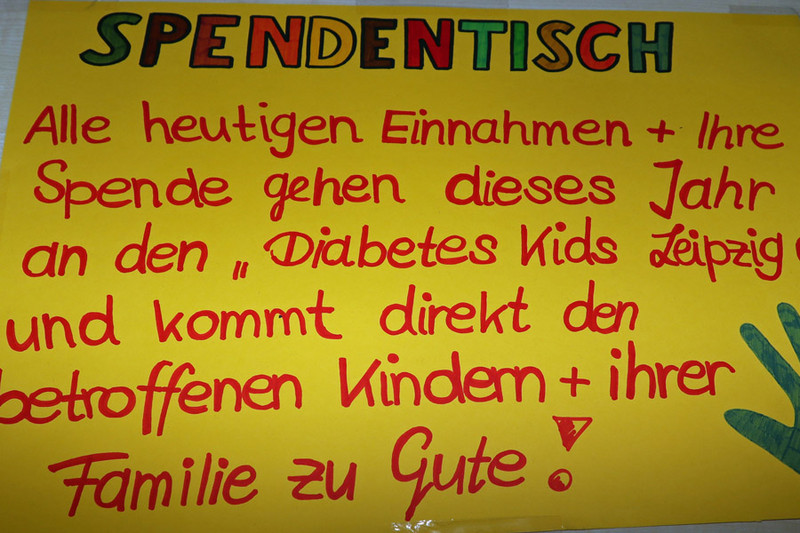 SPENDENTISCH
Alle heutigen Einnahmen + Ihre
Spende gehen dieses Jahr
an den „Diabetes Kids Leipzig“
und kommt direkt den
betroffenen Kindern + ihrer
Familie zu Gute!